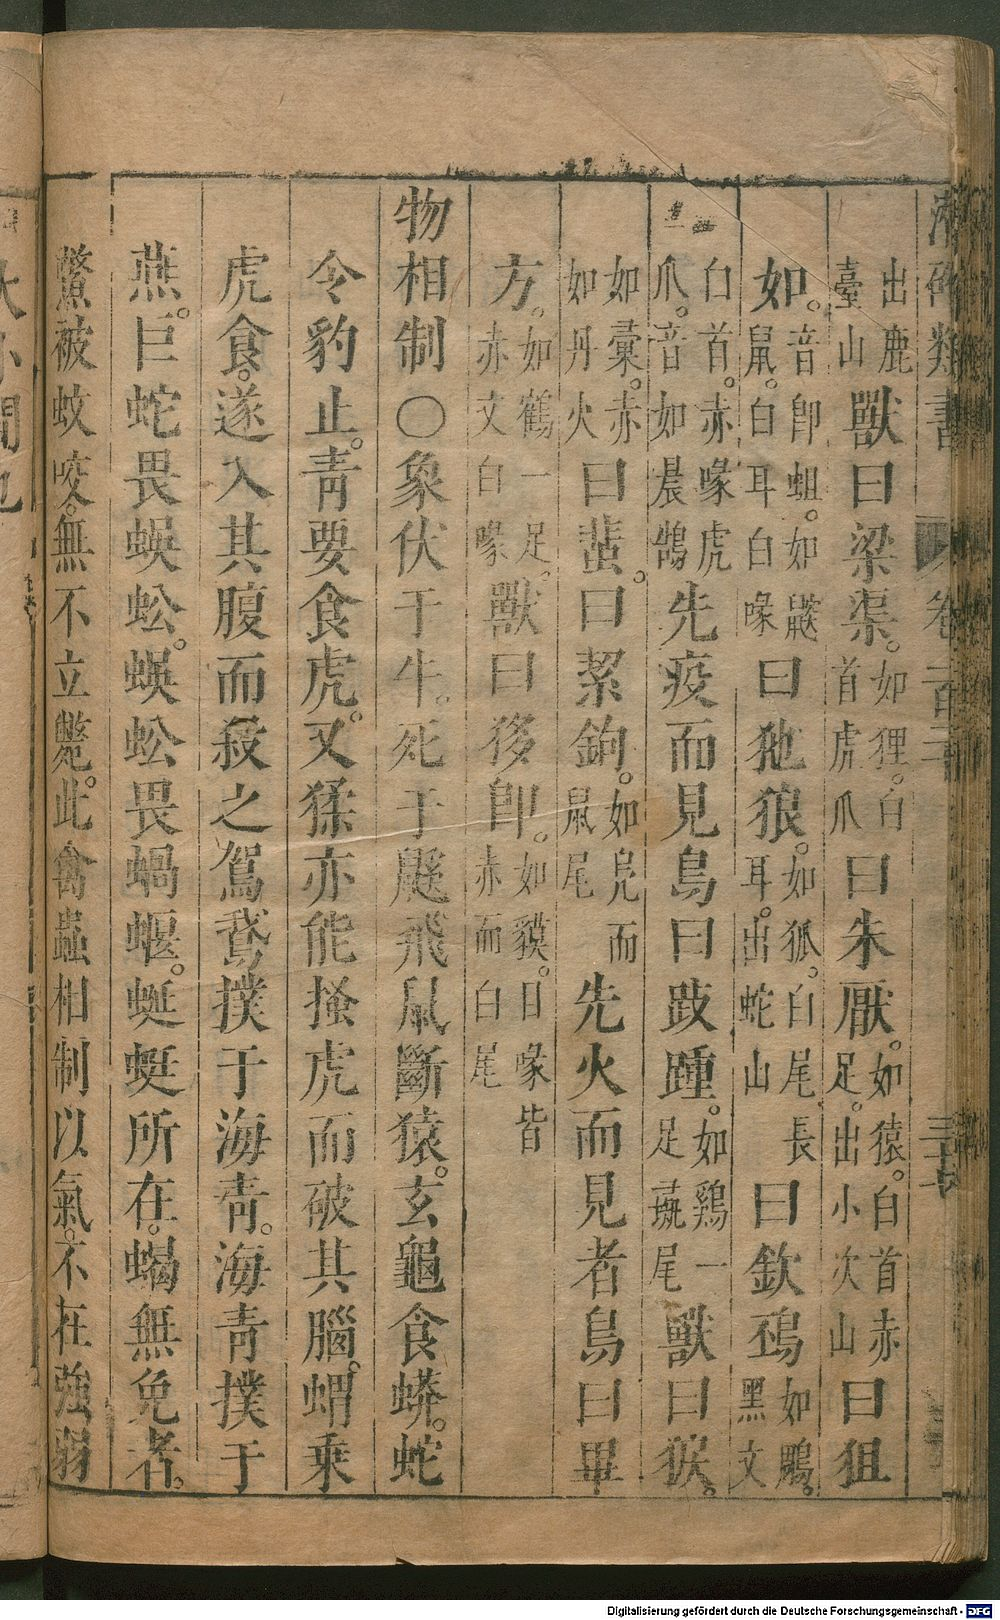 類書 卷一百二 三十七
出鹿臺山獸曰梁渠。如狸。白首虎爪曰朱厭。如猿。白首赤足。出小次山曰狙
如。音卽蛆。如鼣鼠。白耳白喙曰㹢狼。如狐。白尾長耳。出蛇山曰欽䲹如鵰。黑文
白首。赤喙虎爪。音如晨鵠先疫而見鳥曰跂踵。如鷄一足彘尾獸曰㺉。
如彙。赤如丹火曰蜚。曰絜鉤。如鳧而鼠尾先火而見者鳥曰畢
方。如鶴一足。赤文白喙獸曰㺅卽。如貘。目喙皆赤而白尾
物相制〇象伏于牛。死于鼷飛鼠斷猿。玄龜食蟒。蛇
令豹止。青要食虎。又猱亦能搔虎而破其腦。蝟乗
虎食。遂入其腹而殺之駕鵞撲于海靑。海靑撲于
燕。巨蛇畏蜈蚣。蜈蚣畏蝎蝘。蜒蜓所在。蝎無免者。
螫被蚊咬。無不立斃。此禽蟲相制以氣。不在強弱
大小間也
Digitalisierung gefördert durch die Deutsche Forschungsgemeinschaft - DFG